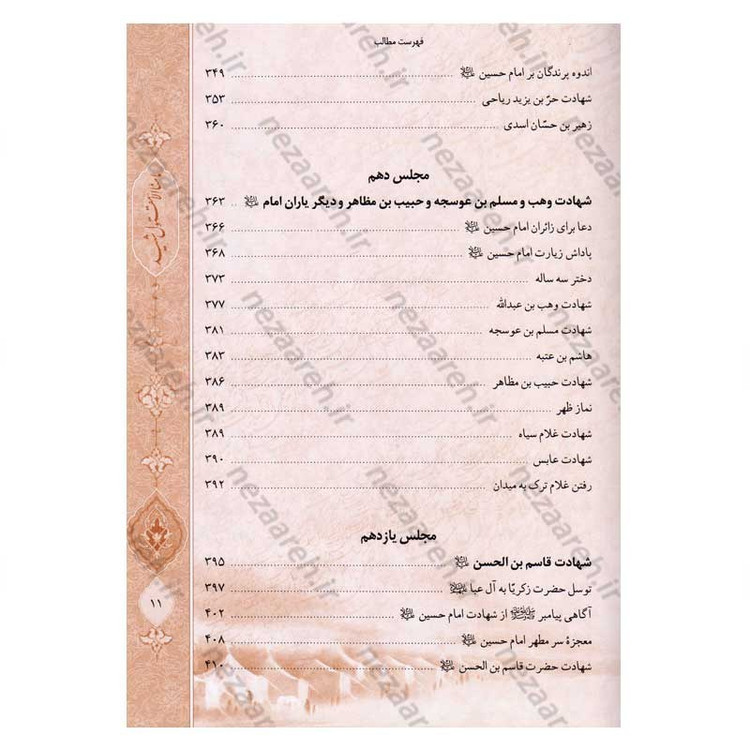 فهرست مطالب
اندوه پرندگان بر امام حسین ۳۴۹
شهادت حرّ بن یزید ریاحی ۳۵۳
زهیر بن حسّان اسدی ۳۶۰
مجلس دهم
شهادت وهب و مسلم بن عوسجه و حبیب بن مظاهر و دیگر یاران امام ۳۶۳
دعا برای زائران امام حسین ۳۶۶
پاداش زیارت امام حسین ۳۶۸
دختر سه ساله ۳۷۳
شهادت وهب بن عبدالله ۳۷۷
شهادت مسلم بن عوسجه ۳۸۱
هاشم بن عتبه ۳۸۳
شهادت حبیب بن مظاهر ۳۸۶
نماز ظهر ۳۸۹
شهادت غلام سیاه ۳۸۹
شهادت عابس ۳۹۰
رفتن غلام ترک به میدان ۳۹۲
مجلس یازدهم
شهادت قاسم بن الحسن ۳۹۵
توسل حضرت زکریّا به آل عبا ۳۹۷
آگاهی پیامبر از شهادت امام حسین ۴۰۲
معجزۀ سر مطهر امام حسین ۴۰۸
شهادت حضرت قاسم بن الحسن ۴۱۰
۱۱
nezaareh.ir